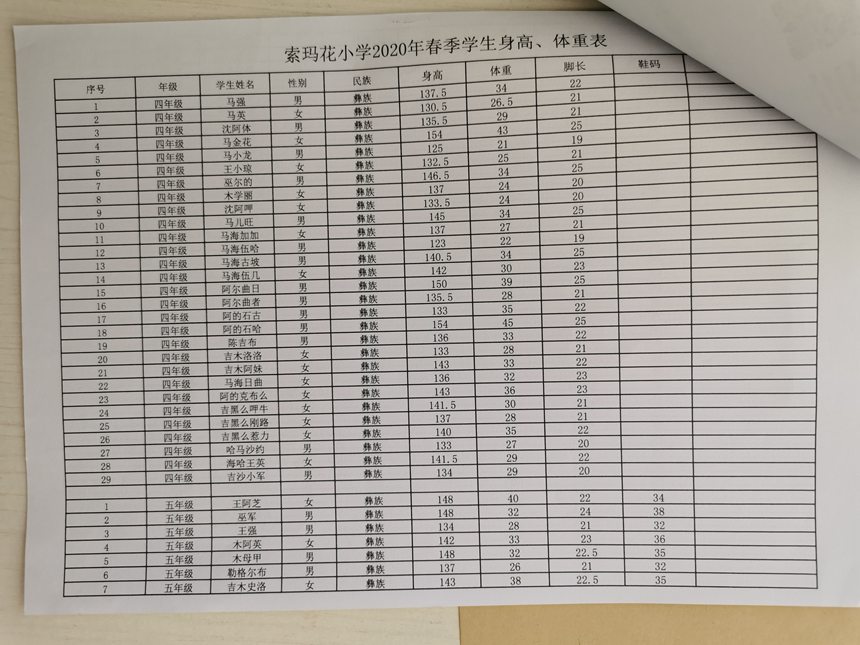 索玛花小学2020年春季学生身高、体重表
序号 年级 学生姓名 性别 民族 身高 体重 脚长 鞋码
1 四年级 马强 男 彝族 137.5 34 22
2 四年级 马英 女 彝族 130.5 26.5 21
3 四年级 沈阿体 男 彝族 135.5 29 21
4 四年级 马金花 女 彝族 154 43 25
5 四年级 马小龙 男 彝族 125 21 19
6 四年级 王小琼 女 彝族 132.5 25 21
7 四年级 巫尔的 男 彝族 146.5 34 25
8 四年级 木学丽 女 彝族 137 24 20
9 四年级 沈阿呷 女 彝族 133.5 24 20
10 四年级 马儿旺 男 彝族 145 34 25
11 四年级 马海加加 女 彝族 137 27 21
12 四年级 马海伍哈 男 彝族 123 22 19
13 四年级 马海古坡 男 彝族 140.5 34 25
14 四年级 马海伍几 女 彝族 142 30 23
15 四年级 阿尔曲日 男 彝族 150 39 25
16 四年级 阿尔曲者 男 彝族 135.5 28 21
17 四年级 阿的石古 男 彝族 133 35 22
18 四年级 阿的石哈 男 彝族 154 45 25
19 四年级 陈吉布 男 彝族 136 33 22
20 四年级 吉木洛洛 女 彝族 133 28 21
21 四年级 吉木阿妹 女 彝族 143 33 22
22 四年级 马海日曲 女 彝族 136 32 23
23 四年级 阿的克布么 女 彝族 143 36 23
24 四年级 吉黑么呷牛 女 彝族 141.5 30 21
25 四年级 吉黑么刚路 女 彝族 137 28 21
26 四年级 吉黑么惹力 女 彝族 140 35 22
27 四年级 哈马沙约 男 彝族 133 27 20
28 四年级 海哈王英 女 彝族 141.5 29 22
29 四年级 吉沙小军 男 彝族 134 29 20
1 五年级 王阿芝 女 彝族 148 40 22 34
2 五年级 巫军 男 彝族 148 32 24 38
3 五年级 王强 男 彝族 134 28 21 32
4 五年级 木阿英 女 彝族 142 33 23 36
5 五年级 木母甲 男 彝族 148 32 22.5 35
6 五年级 勒格尔布 男 彝族 137 26 21 32
7 五年级 吉木史洛 女 彝族 143 38 22.5 35